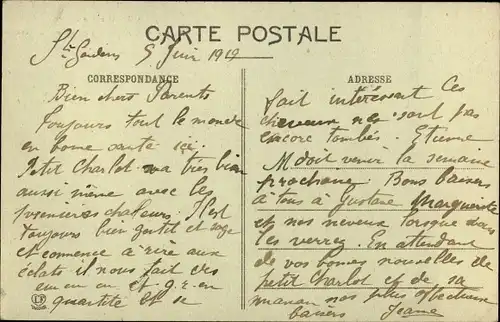 CARTE POSTALE
St Gaudens 5 Juin 1919
CORRESPONDANCE
Bien chers Parents
Toujours tout le monde
en bonne santé ici.
Petit Charlot va très bien
aussi même avec les
premières chaleurs. Il est
toujours bien gentil et sage
et commence à rire aux
éclats il nous fait des
en et
quantité et se
LF
ADRESSE
fait intéressant Ces
cheveux ne sont pas
encore tombés. Etienne
M doit venir la semaine
prochaine. Bons baisers
à tous à Gustave Marguerite
et nos neveux lorsque vous
les verrez. En attendant
de vos bonnes nouvelles de
petit Charlot et de sa
maman nos plus affectueux
baisers Jeane